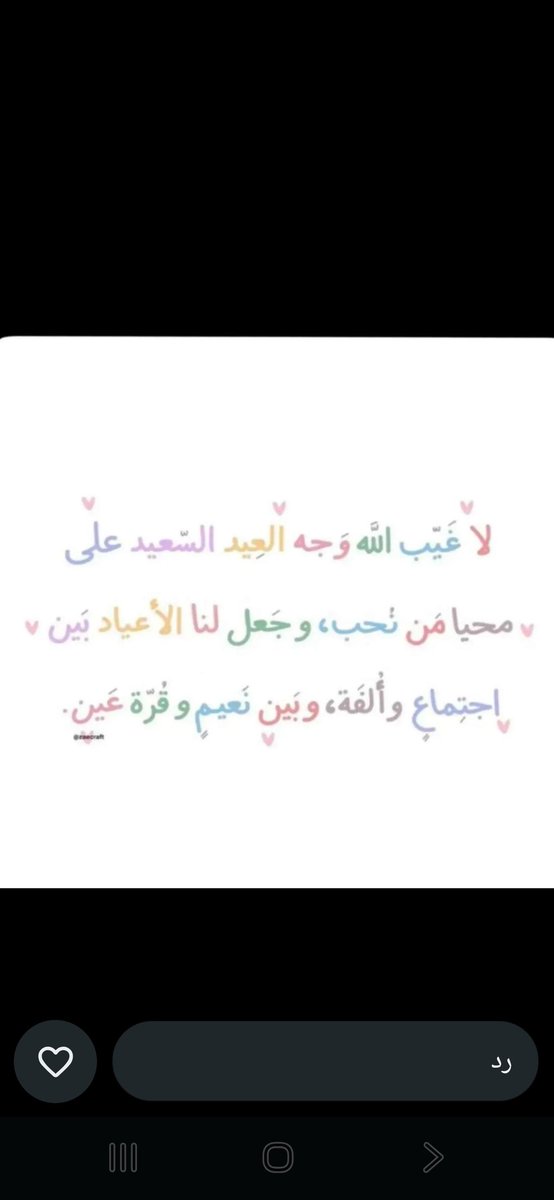 لا غَيّب اللَّه وَجه العِيد السّعيد على
محيا مَن نُحب، و جَعل لنا الأعياد بَين
اجتِماعٍ و أُلفَة، و بَين نَعيمٍ و قُرّة عَين.
@zaecraft
رد